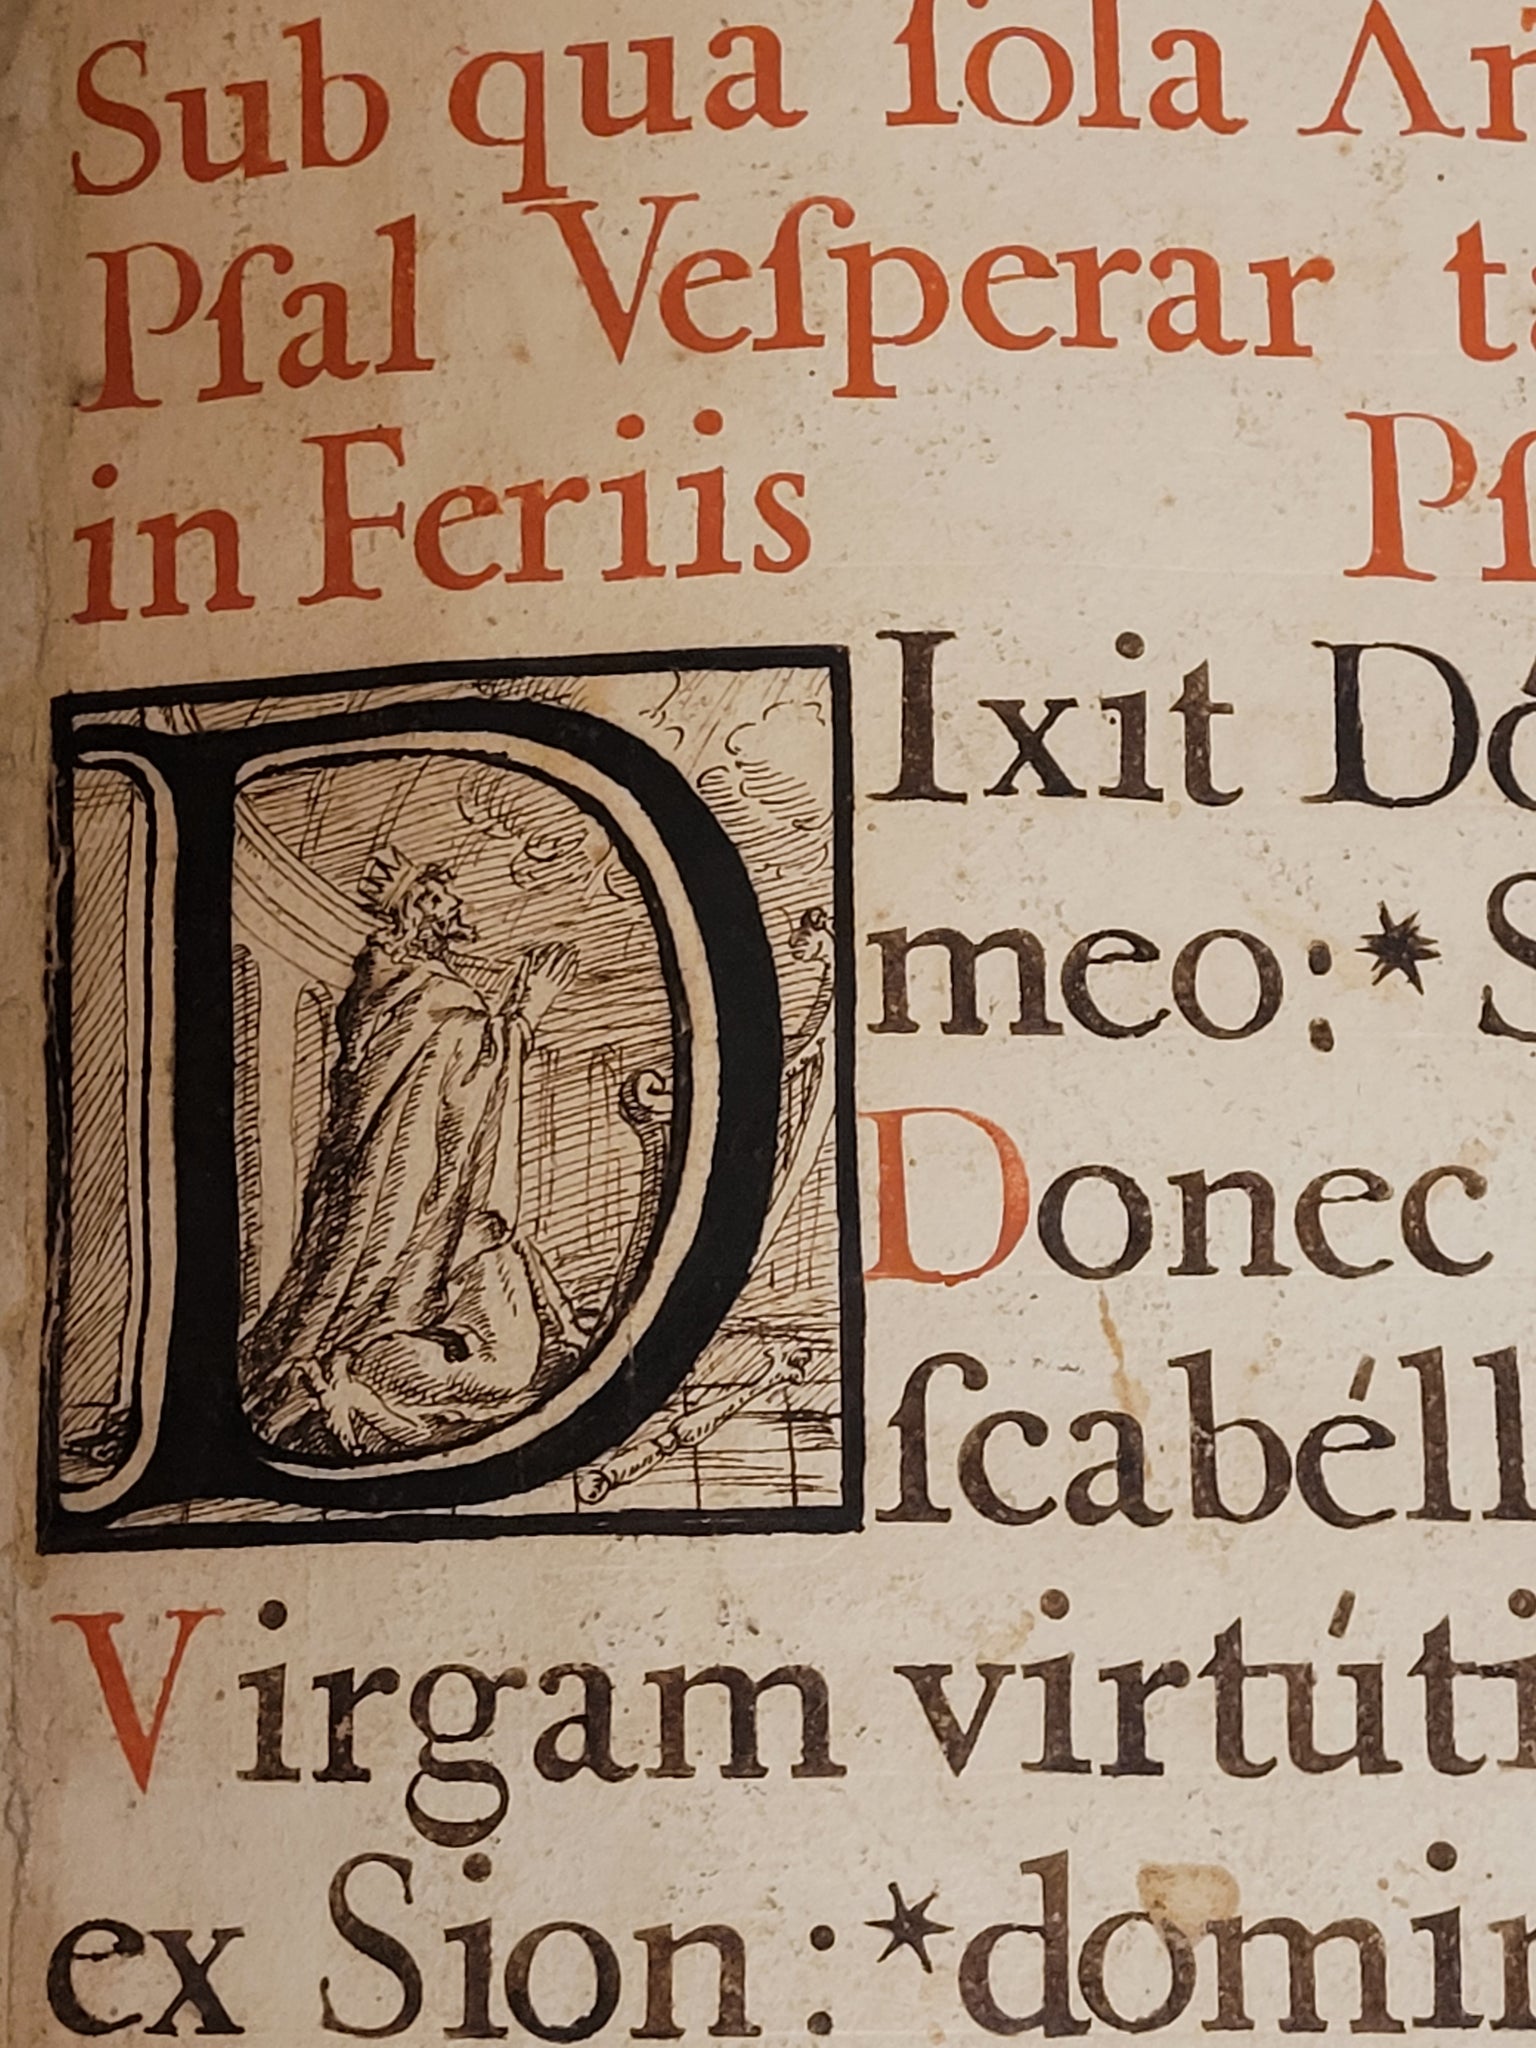 Sub qua ſola
Pſal Veſperar
in Feriis
DIxit
meo: * 
Donec
ſcabéll
Virgam virtúti
ex Sion: *domin